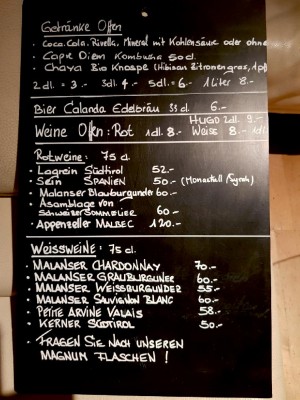 Getränke Offen
• Coca. Cola. Rivella, Mineral mit Kohlensäure oder ohne
• Capt Diem Kombucha 50 cl.
• Chaya Bio Knospe (Hibisan Zitronengras,
2 dl. = 3.- 3dl. 4.- 5dl. = 6.- 1 liter 8.-
Bier Calanda Edelbräu 33 cl 6.-
HUGO 2dl. 9.-
Weine Offen: Rot 1dl. 8.- Weiss 8.- 1dl
Rotweine: 75 cl.
• Lagrein Südtirol 52.-
• Sein SPANIEN 50.- (Monastrell Syrah)
• Malanser Blauburgunder 60.-
• Asamblage von
Schweizer SOMMELIER 60.-
• Appenzeller MALBEC 120.-
WEISSWEINE: 75 cl.
• MALANSER CHARDONNAY 70.-
• MALANSER GRAUBURGUNER 60.-
• MALANSER WEISSBURGUNDER 55.-
• MALANSER SAUVIGNON BLANC 60.-
• PETITE ARVINE VALAIS 58.-
• KERNER SÜDTIROL 50.-
• FRAGEN SIE NACH UNSEREN
MAGNUM FLASCHEN !